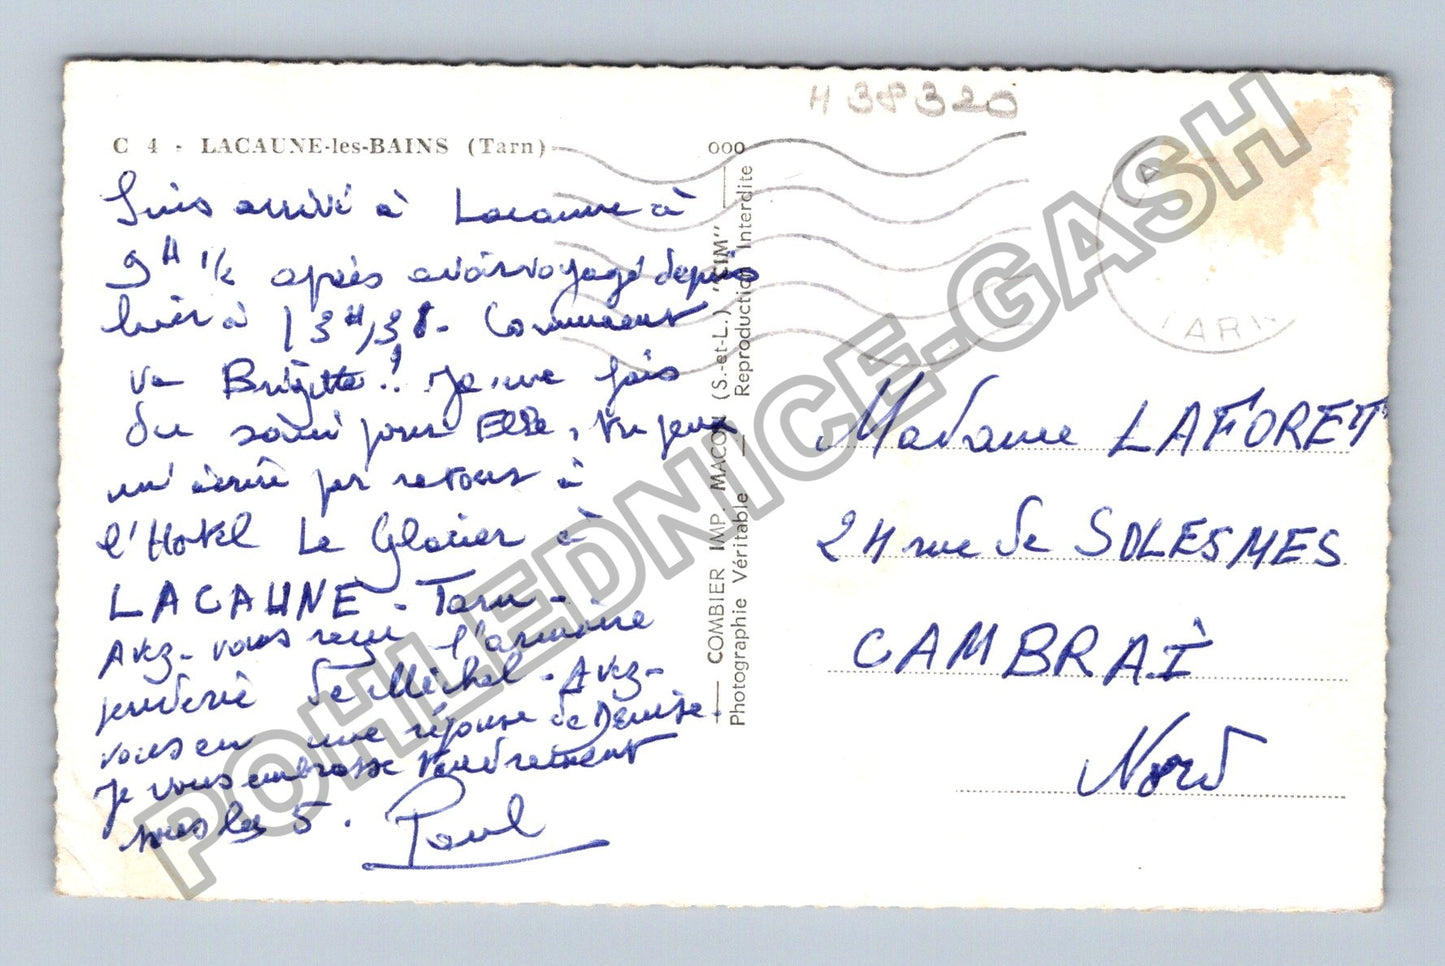 H 38320
C 4 - LACAUNE-les-BAINS (Tarn)
Suis arrivé à Lacaune à
9H 1/2 après avoir voyagé depuis
hier à 13H,38. Comment
va Brigitte? Je me fais
du souci pour Elle, tu peux
m'écrire par retour à
l'Hotel Le Glacier à
LACAUNE - Tarn -
Avez-vous reçu l'armoire
penderie de Michel - Avez-
vous eu une réponse de Denise.
Je vous embrasse tendrement
tous les 5.
Paul
ooo
COMBIER IMP. MACON (S.-et-L.) "CIM"
Photographie Véritable — Reproduction Interdite
TARN
Madame LAFORET
24 rue de SOLESMES
CAMBRAI
Nord
POHLEDNICE-GASH